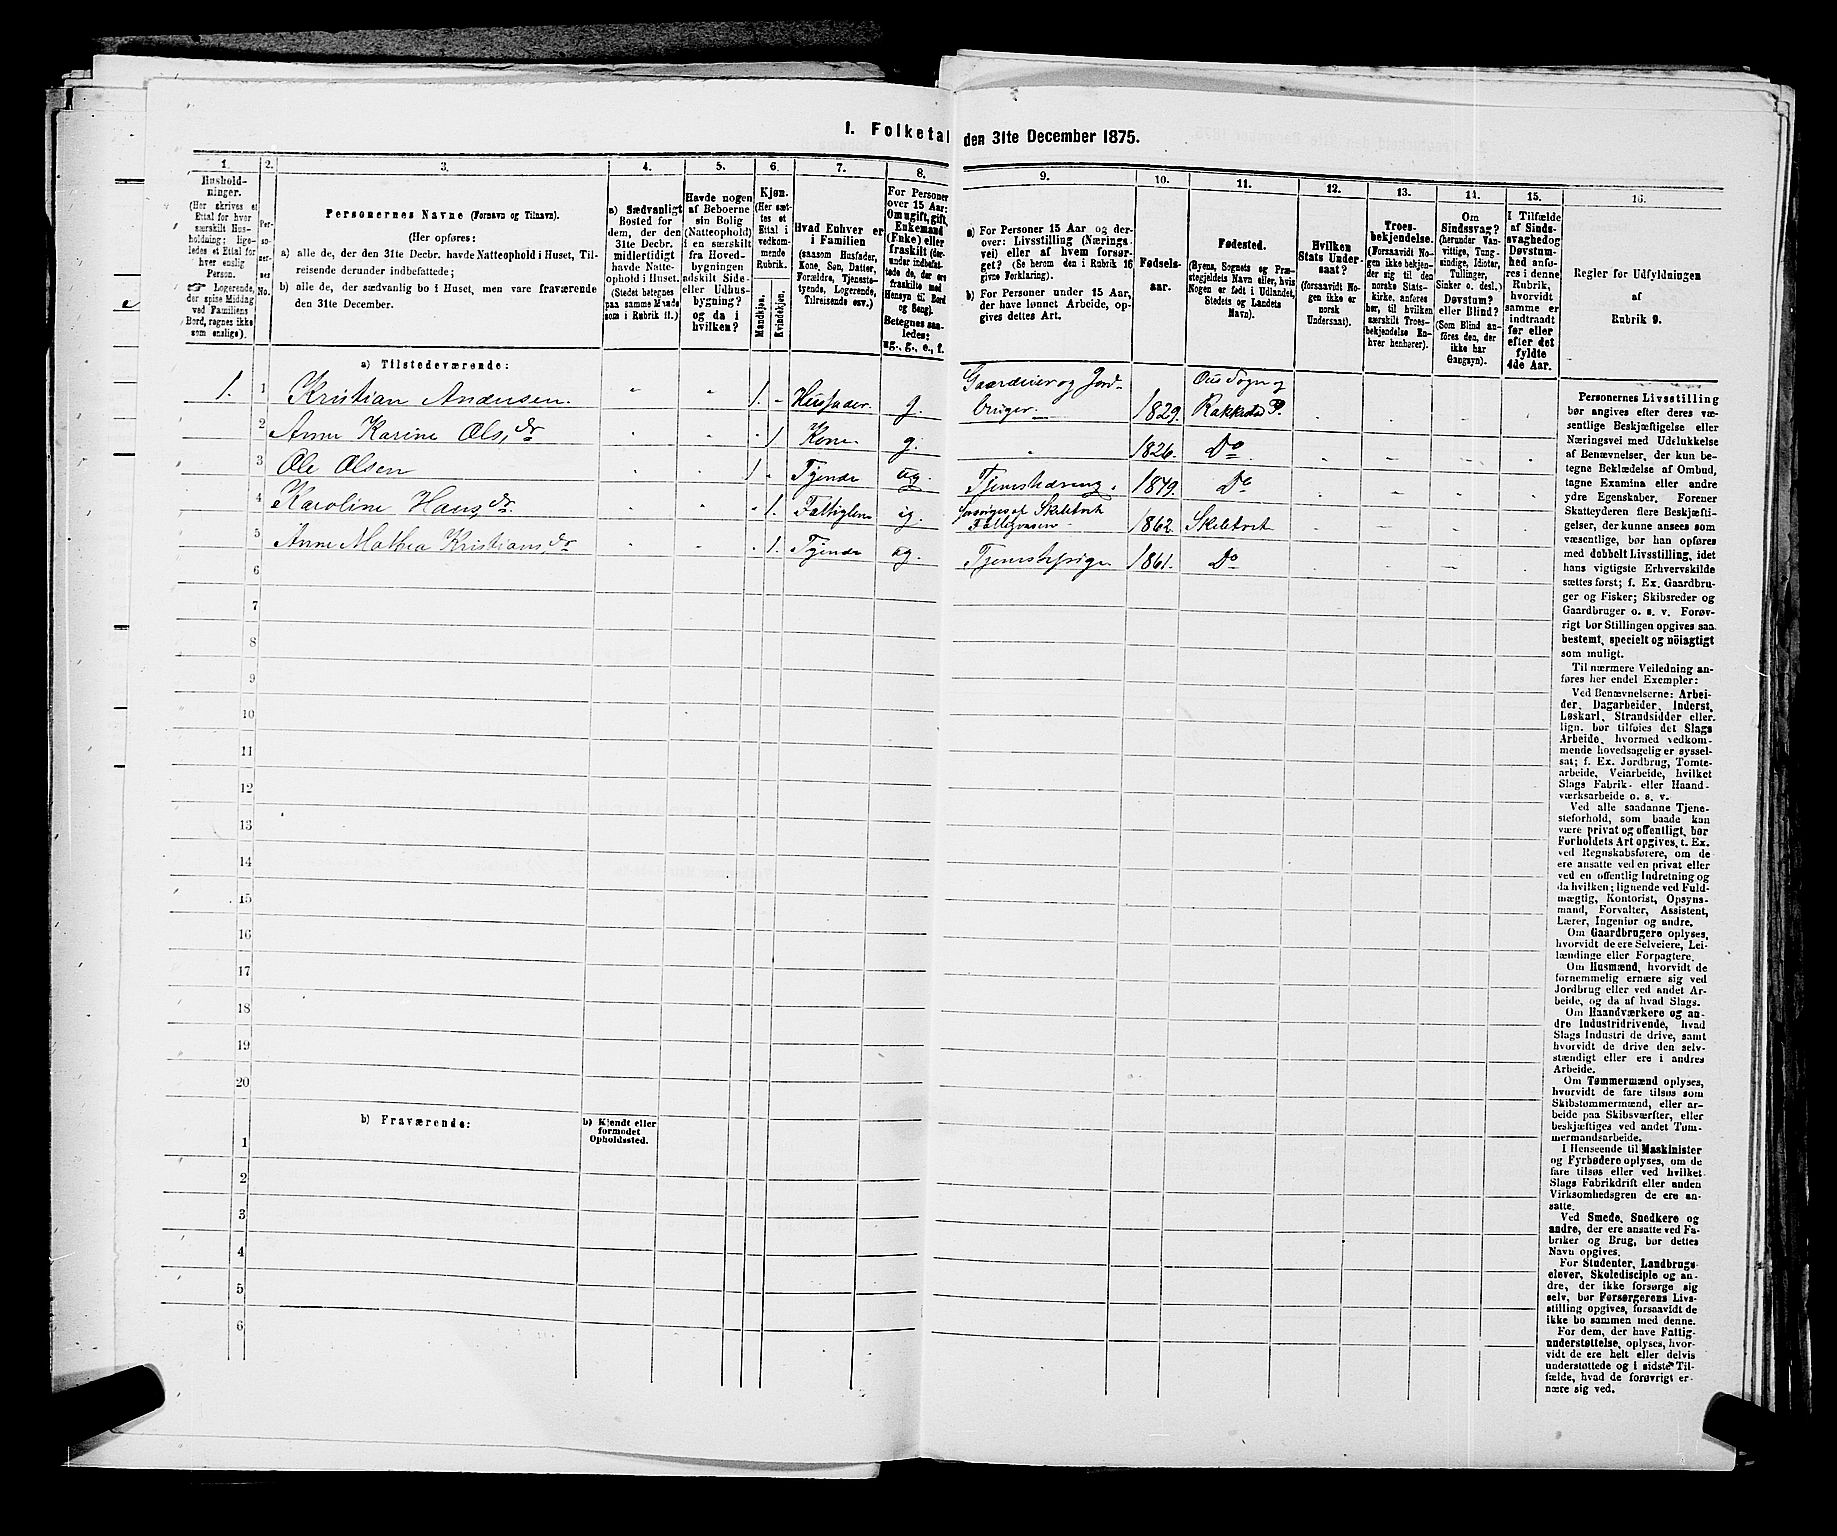 1. Folketal den 31te December 1875.
1.
2.
3.
4.
5.
6.
7.
8.
9.
10.
11.
12.
13.
14.
15.
16.
Hushold-
ninger.
(Her skrives et
Ettal for hver
særskilt Hus-
holdning; lige-
ledes et Ettal for
hver enslig
Person.
☞ Logerende,
der spise Middag
ved Familiens
Bord, regnes ikke
som enslige).
Per-
so-
ner-
nes
No.
Personernes Navne (Fornavn og Tilnavn).
(Her opføres:
a) alle de, der den 31te Decbr. havde Natteophold i Huset, Til-
reisende derunder indbefattede;
b) alle de, der sædvanlig bo i Huset, men vare fraværende
den 31te December.
a) Sædvanligt
Bosted for
dem, der den
31te Decbr.
midlertidigt
havde Natte-
ophold i Huset.
(Stedet betegnes
paa samme Maade
som i Rubrik 11.)
Havde nogen
af Beboerne
sin Bolig
(Natteophold)
i en særskilt
fra Hoved-
bygningen
adskilt Side-
eller Udhus-
bygning?
og da i
hvilken?
Kjøn.
(Her sæt-
tes et
Ettal i
vedkom-
mende
Rubrik.
Mandkjøn.
Kvindekjøn.
Hvad Enhver er
i Familien
(saasom Husfader,
Kone, Søn, Datter,
Forældre, Tjeneste-
tyende, Logerende,
Tilreisende osv.)
For Personer
over 15 Aar:
Om ugift, gift,
Enkemand
(Enke) eller
fraskilt (der-
under indbefat-
tede de, der ere
fraskilte med
Hensyn til Bord
og Seng).
Betegnes saa-
ledes:
ug., g., e., f.
a) For Personer 15 Aar og der-
over: Livsstilling (Nærings-
vei) eller af hvem forsør-
get? (Se herom den i Rubrik 16
givne Forklaring).
b) For Personer under 15 Aar,
der have lønnet Arbeide, op-
gives dettes Art.
Fødsels-
aar.
Fødested.
(Byens, Sognets og Præ-
stegjeldets Navn eller, hvis
Nogen er født i Udlandet,
Stedets og Landets
Navn).
Hvilken
Stats Under-
saat?
(forsaavidt No-
gen ikke er
norsk
Undersaat).
Troes-
bekjendelse.
(Forsaavidt No-
gen ikke bekjen-
der sig til den
norske Stats-
kirke, anføres
her, til hvilken
særskilt Troes-
bekjendelse En-
hver henhører).
Om
Sindssvag?
(herunder Van-
vittige, Tung-
sindige, Idioter,
Tullinger,
Sinker o. desl.)
Døvstum?
eller Blind?
(Som Blind an-
føres den, der
ikke har
Gangsyn).
I Tilfælde
af Sinds-
svaghed og
Døvstum-
hed anfø-
res i denne
Rubrik,
hvorvidt
samme er
indtraadt
før eller
efter det
fyldte
4de Aar.
Regler for Udfyldningen
af
Rubrik 9.
a) Tilstedeværende:
1. 1 Kristian Andersen. 1. Husfader. g. Gaardeier og Jord-
bruger. 1829. Sogn og
Rakkestad P.
2 Anne Karine Ols.dr 1 Kone g. 1826. Do
3 Ole Olsen 1 Tyende ug. 1849. Do
4 Karoline Hans.dr. 1. ug. forsørges af Skibtvet
Fattigvæsen 1862. Skibtvet
5 Anne Mathea Kristians.dr 1. Tyende ug. Tjenestepige 1861. Do
6
7
8
9
10
11
12
13
14
15
16
17
18
19
20
b) Fraværende:
b) Kjendt eller
formodet
Opholdssted.
1
2
3
4
5
6
Personernes Livsstilling
bør angives efter deres væ-
sentlige Beskjæftigelse eller
Næringsvei med Udelukkelse
af Benævnelser, der kun be-
tegne Beklædelse af Ombud,
tagne Examina eller andre
ydre Egenskaber. Forener
Skatteyderen flere Beskjæfti-
gelser, der kunne ansees som
væsentlige, bør han opføres
med dobbelt Livsstilling, idet
hans vigtigste Erhvervskilde
sættes først; f. Ex. Gaardbru-
ger og Fisker; Skibsreder og
Gaardbruger o. s. v. Forøv-
rigt bør Stillingen opgives saa
bestemt, specielt og nøiagtigt
som muligt.
Til nærmere Veiledning an-
føres her endel Exempler:
Ved Benævnelserne: Arbei-
der, Dagarbeider, Inderst,
Løskarl, Strandsidder eller
lign. bør tilføies det Slags
Arbeide, hvormed vedkom-
mende hovedsagelig er syssel-
sat; f. Ex. Jordbrug, Tomte-
arbeide, Veiarbeide, hvilket
Slags Fabrik- eller Haand-
værksarbeide o. s. v.
Ved alle saadanne Tjene-
steforhold, som baade kan
være privat og offentligt, bør
Forholdets Art opgives, t. Ex.
ved Regnskabsførere, om de
ere ansatte ved en privat eller
ved en offentlig Indretning og
da hvilken; lignende ved Fuld-
mægtig, Kontorist, Opsyns-
mand, Forvalter, Assistent,
Lærer, Ingeniør og andre.
Om Gaardbrugere oplyses,
hvorvidt de ere Selveiere, Lei-
lændinge eller Forpagtere.
Om Husmænd, hvorvidt de
fornemmelig ernære sig ved
Jordbrug eller ved andet Ar-
beide, og da af hvad Slags.
Om Haandværkere og an-
dre Industridrivende, hvad
Slags Industri de drive, samt
hvorvidt de drive den selv-
stændigt eller ere i andres
Arbeide.
Om Tømmermænd oplyses,
hvorvidt de fare tilsøs som
Skibstømmermænd, eller ar-
beide paa Skibsværfter, eller
beskjæftiges ved andet Tøm-
mermandsarbeide.
I Henseende til Maskinister
og Fyrbødere oplyses, om de
fare tilsøs eller ved hvilket
Slags Fabrikdrift eller anden
Virksomhedsgren de ere an-
satte.
Ved Smede, Snedkere og
andre, der ere ansatte ved Fa-
briker og Brug, bør dettes
Navn opgives.
For Studenter, Landbrugs-
elever, Skoledisciple og an-
dre, der ikke forsørge sig
selv, bør Forsørgerens Livs-
stilling opgives, forsaavidt de
ikke bo sammen med denne.
For dem, der have Fattig-
understøttelse, oplyses, hvor-
vidt de ere helt eller delvis
understøttede og i sidste Til-
fælde, hvad de forøvrigt er-
nære sig ved.